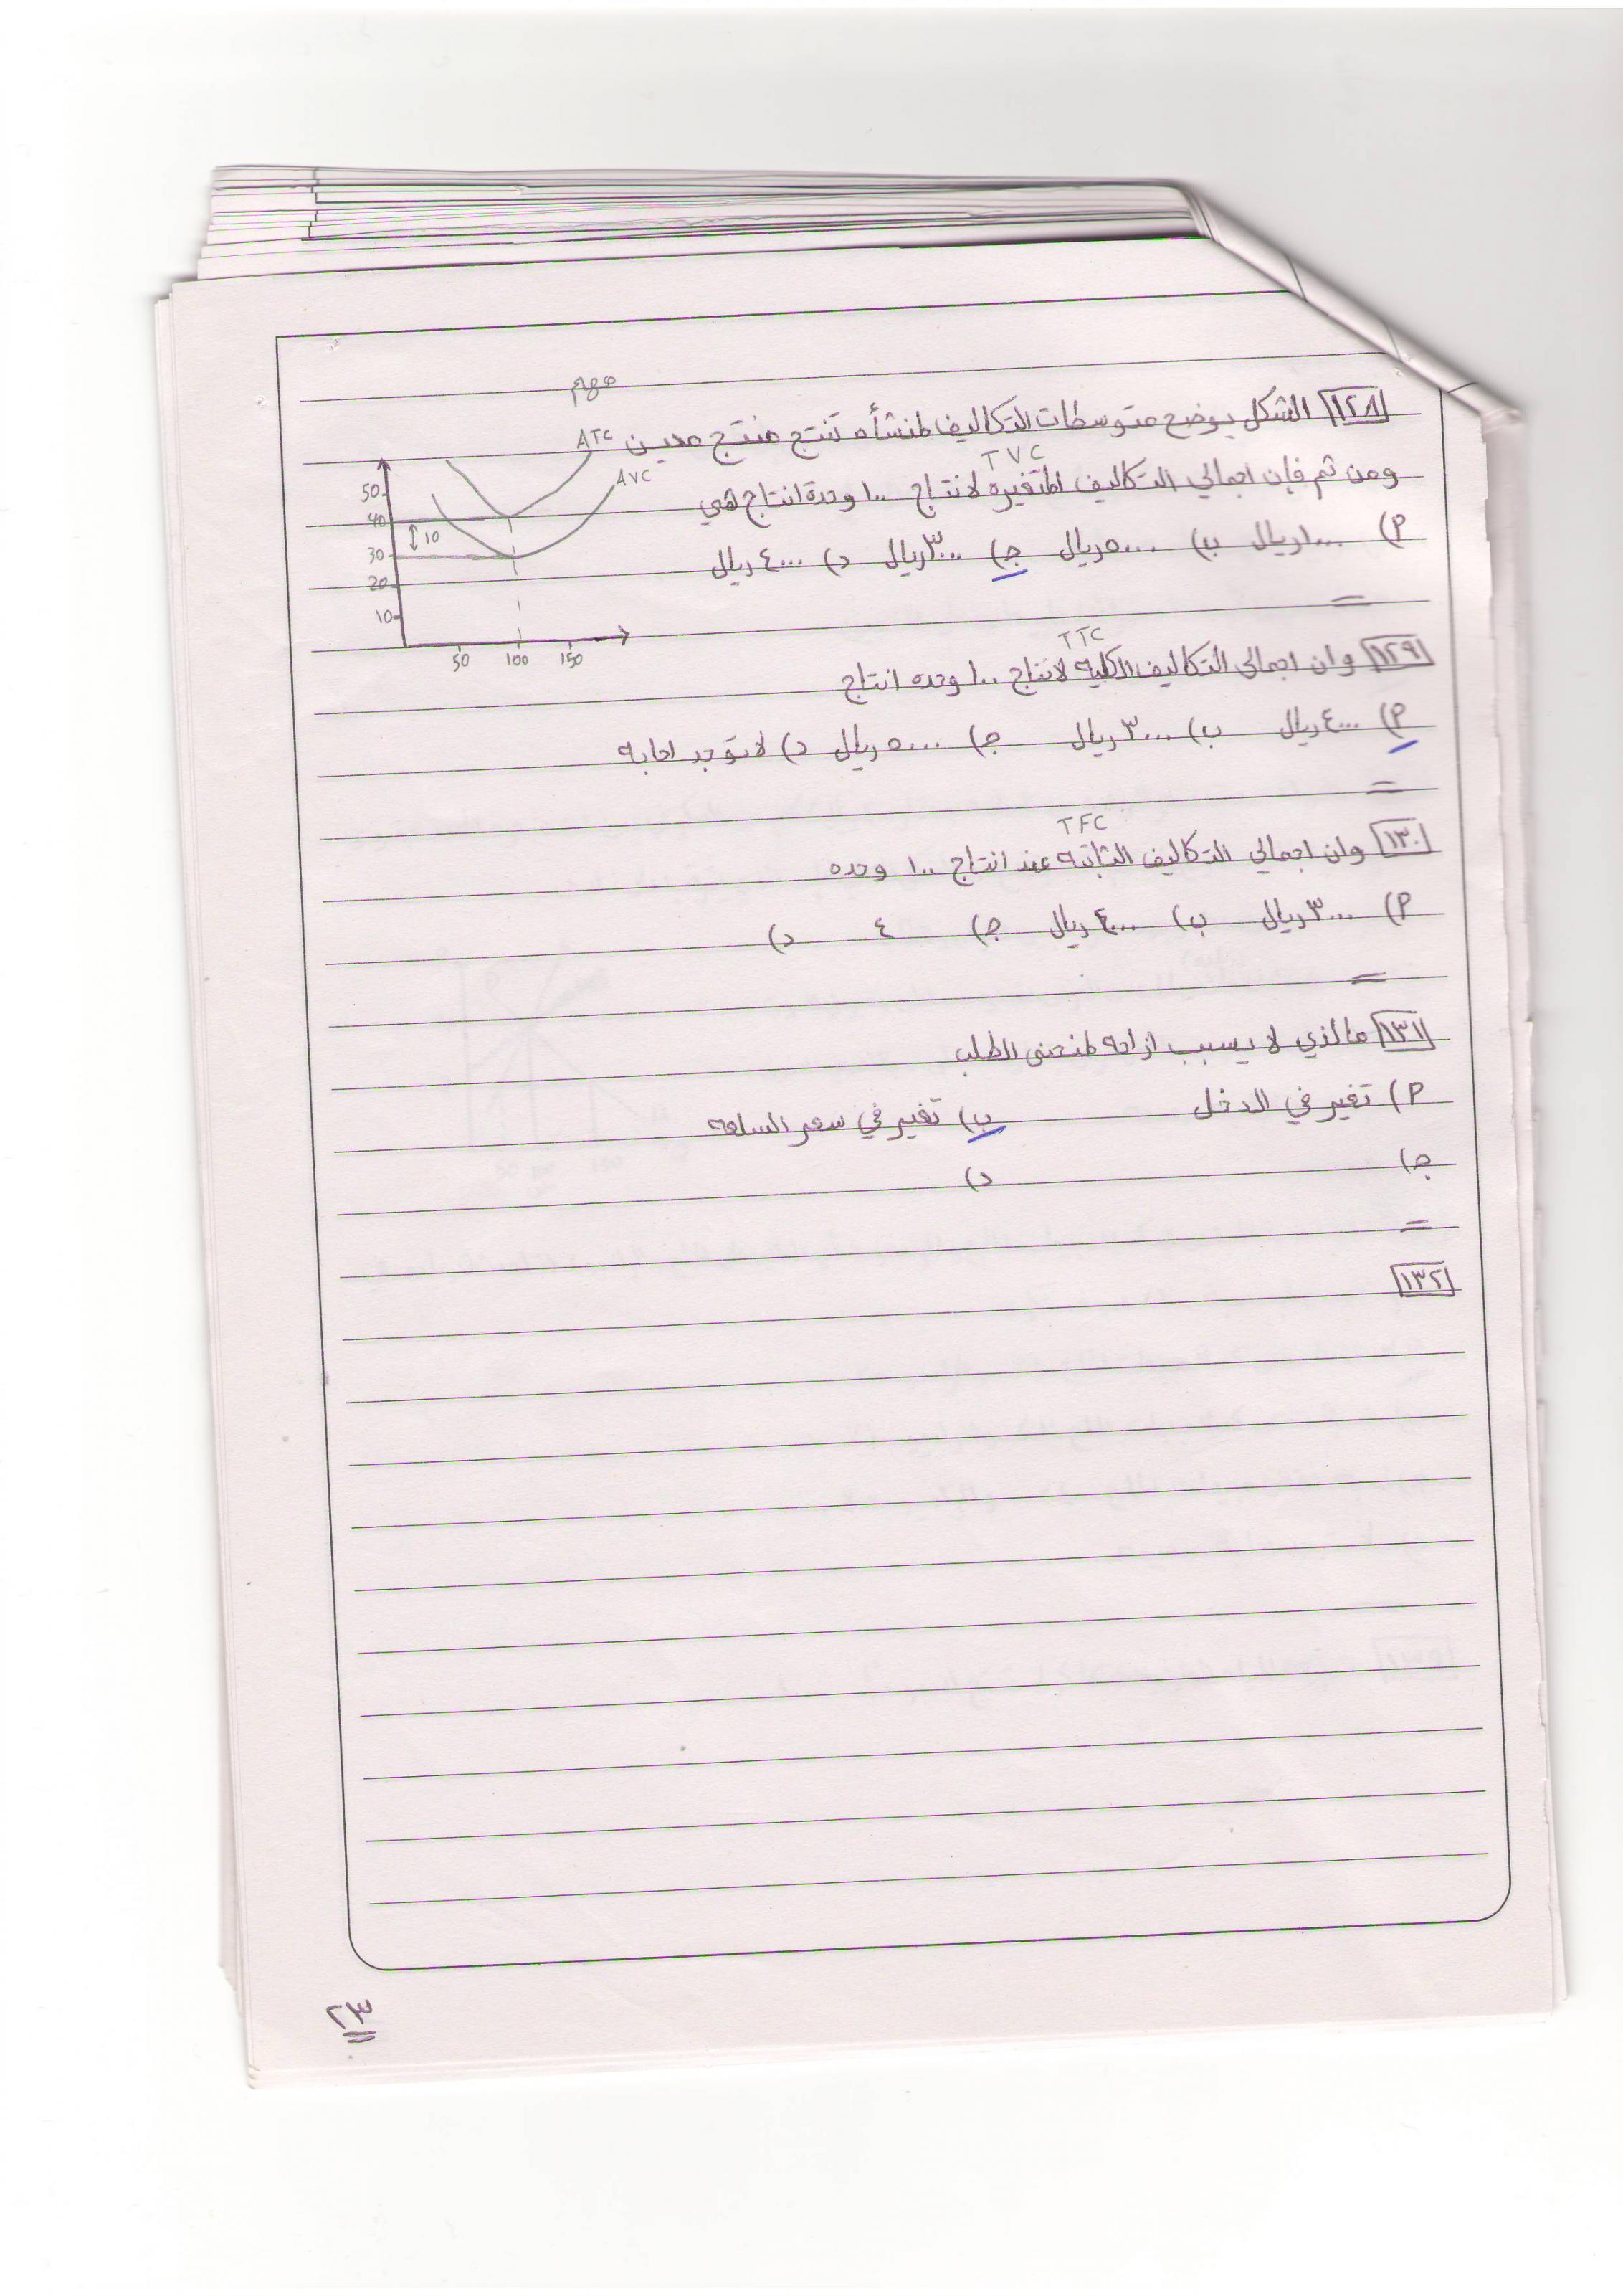 مهم
١٢٨ الشكل يوضح متوسطات التكاليف لمنشأه تنتج منتج معين
ATC
AVC
TVC
ومن ثم فإن اجمالي التكاليف المتغيره لانتاج ١٠٠ وحدة انتاج هي
50
40
10
30
20
10
50 100 150
أ) ١٠٠٠ ريال ب) ٥٠٠٠ ريال ج) ٣٠٠٠ ريال د) ٤٠٠٠ ريال
=
TTC
١٢٩ وان اجمالي التكاليف الكليه لانتاج ١٠٠ وحده انتاج
أ) ٤٠٠٠ ريال ب) ٣٠٠٠ ريال ج) ٥٠٠٠ ريال د) لا توجد اجابه
=
TFC
١٣٠ وان اجمالي التكاليف الثابته عند انتاج ١٠٠ وحده
أ) ٣٠٠٠ ريال ب) ٤٠٠٠ ريال ج) ٤ د)
=
١٣١ مالذي لا يسبب ازاحه لمنحنى الطلب
أ) تغير في الدخل ب) تغير في سعر السلعه
ج) د)
=
١٣٢